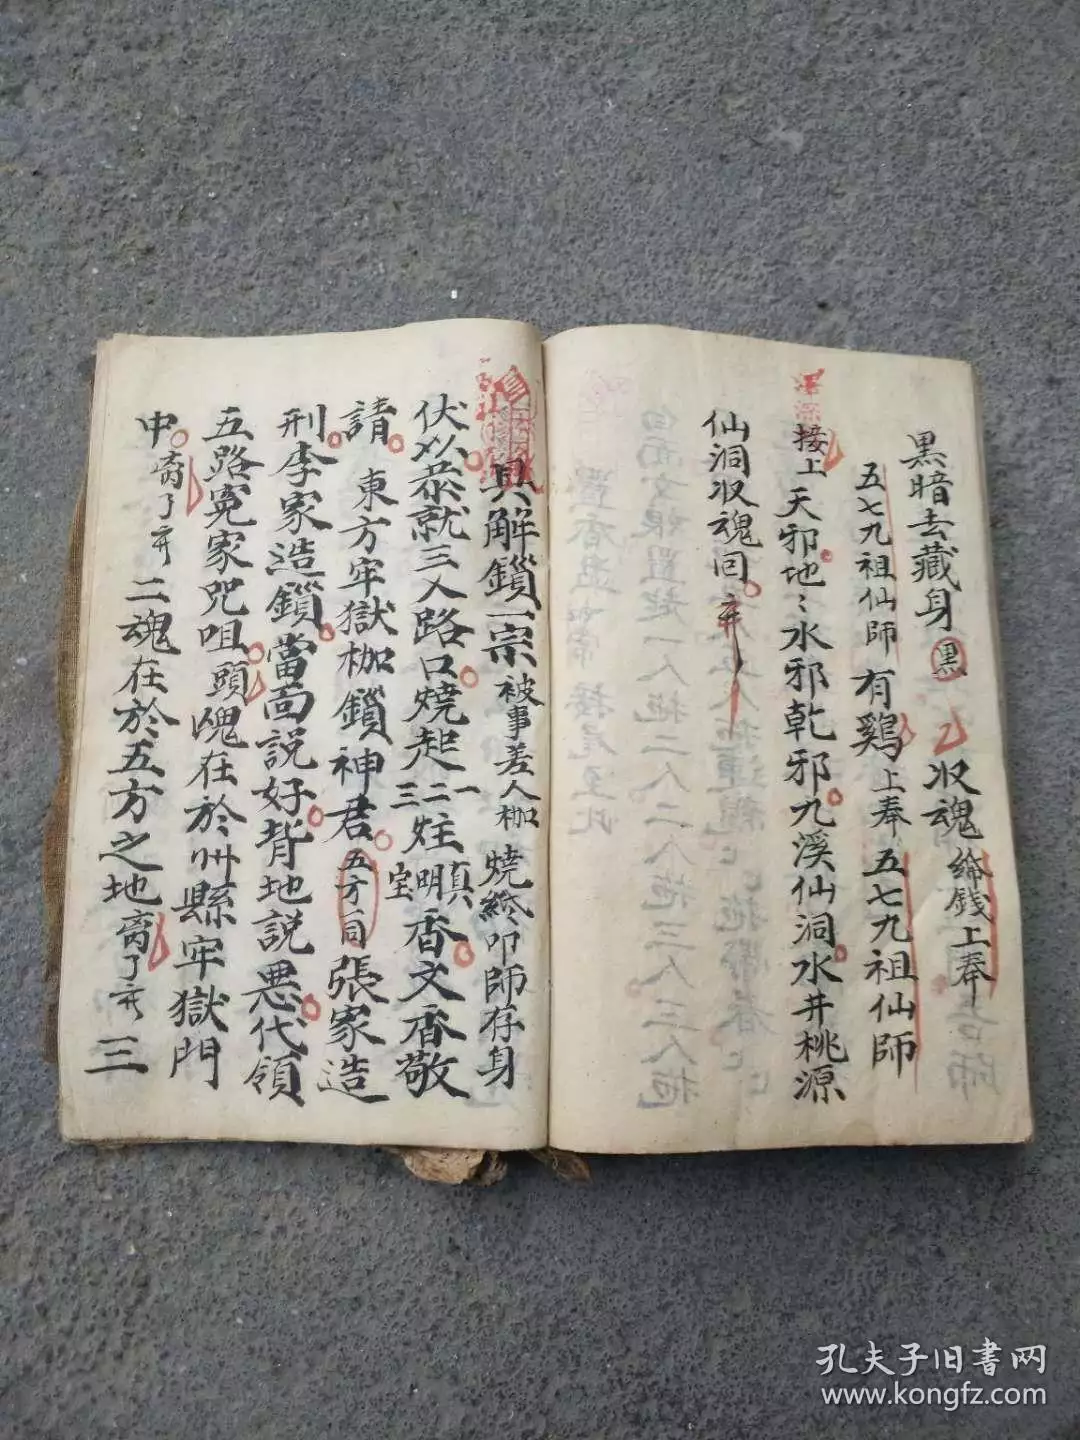 黑暗去藏身 黑 收魂 給錢上奉
五七九祖仙師 有鷄 上奉 五七九祖仙師
接上 天邪地〻水邪乾邪九溪仙洞水井桃源
仙洞收魂回
具解鎖一宗 被事差人枷 燒給叩師存身
伏以恭就三人路口燒起一二三炷真明宝香文香敬
請 東方牢獄枷鎖神君 五方同 張家造
刑李家造鎖當面說好背地說悪代領
五路冤家咒咀頭魂在於州縣牢獄門
中 离了 二魂在於五方之地 离了 三
孔夫子旧書网
www.kongfz.com